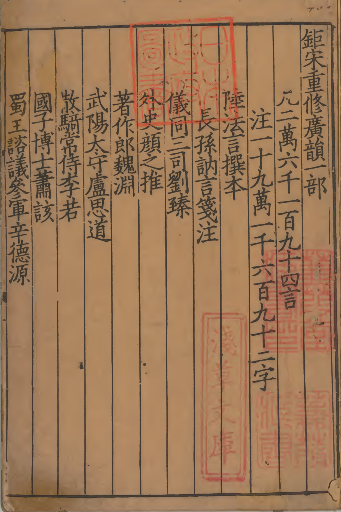 鉅宋重修廣韻一部
凡二萬六千一百九十四言
注一十九萬一千六百九十二字
陸法言撰本
長孫訥言箋注
儀同三司劉臻
外史顏之推
著作郎魏淵
武陽太守盧思道
散騎常侍李若
國子博士蕭該
蜀王諮議參軍辛德源
淺草文庫